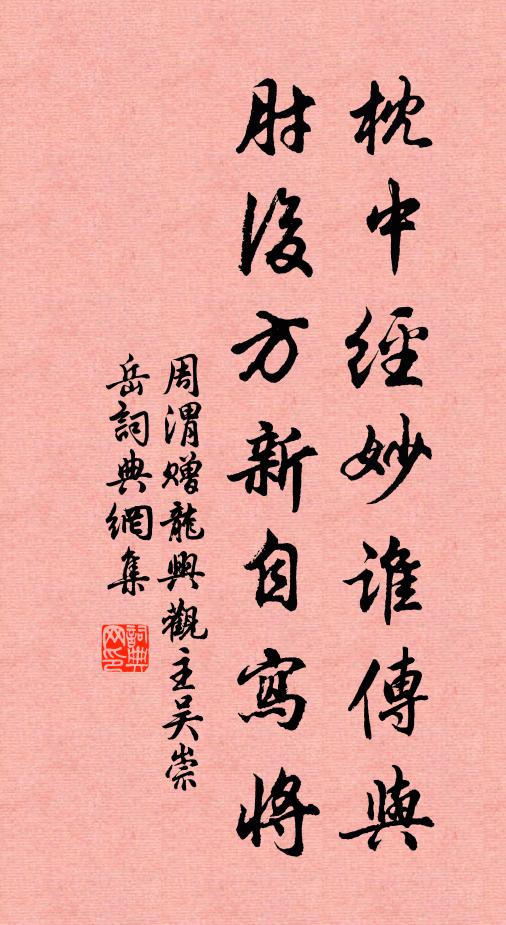 枕中經妙誰傳與
肘後方新自寫將
周渭贈龍興觀主吳崇
岳詞典網集
詞典
网印